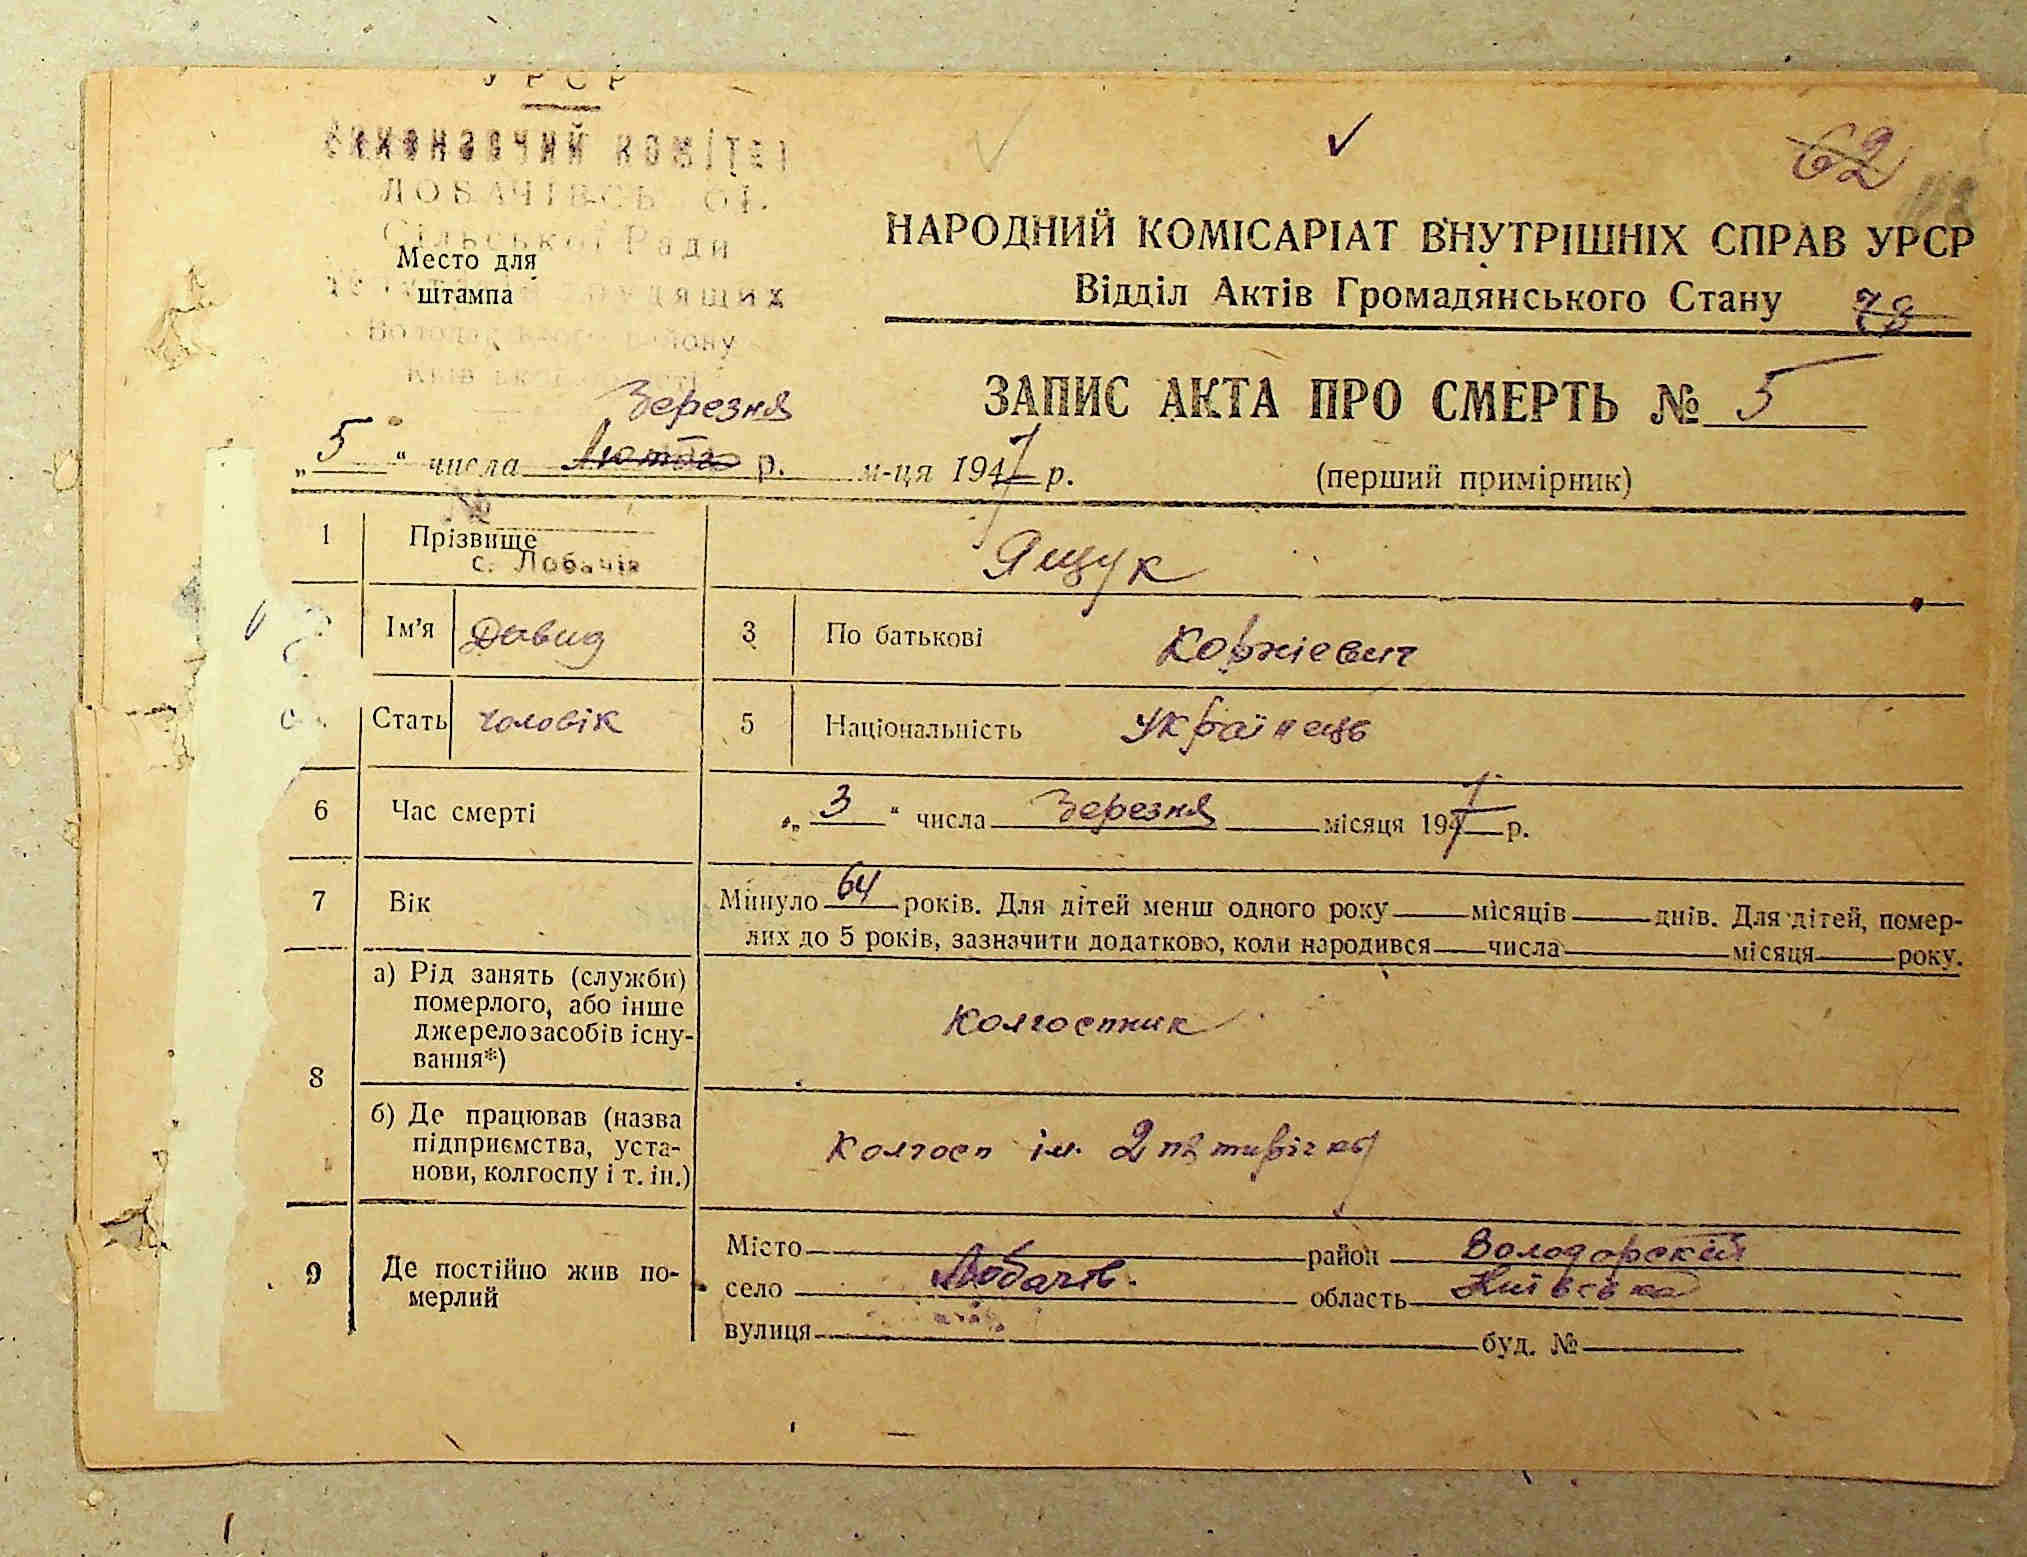 УРСР
Виконавчий комітет
ЛОБАЧІВСЬ ОЇ
Сільської Ради
Место для
штампа
трудящих
Володар району
62
НАРОДНИЙ КОМІСАРІАТ ВНУТРІШНІХ СПРАВ УРСР
Відділ Актів Громадянського Стану 78
ЗАПИС АКТА ПРО СМЕРТЬ № 5
Березня
„5“ числа Лютого р. м-ця 1947 р. (перший примірник)
№
1 Прізвище Ящук
с. Лобачів
Ім'я Давид 3 По батькові Корнієвич
Стать чоловік 5 Національність Українець
6 Час смерті „3“ числа Березня місяця 1947 р.
7 Вік Минуло 64 років. Для дітей менш одного року місяців днів. Для дітей, помер-
лих до 5 років, зазначити додатково, коли народився числа місяця року.
8 а) Рід занять (служби)
померлого, або інше
джерело засобів існу-
вання*)
Колгоспник
б) Де працював (назва
підприємства, уста-
нови, колгоспу і т. ін.)
Колгосп ім. 2 пятирічки
9 Де постійно жив по-
мерлий
Місто район Володарский
село Лобачів. область Київська
вулиця буд. №